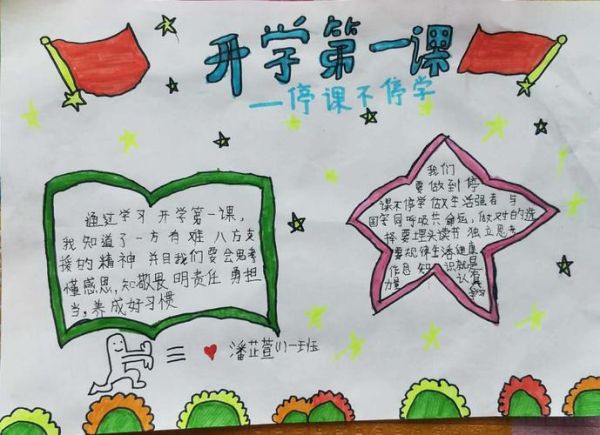 开学第一课
—停课不停学
通过学习 开学第一课,
我知道了一方有难 八方支
援的精神 并且我们要会思考
懂感恩,知敬畏 明责任 勇担
当,养成好习惯
我们
要做到停
课不停学做生活强者 与
国家同呼吸共命运,做对的选
择要埋头读书 独立思考
要规律生活健康
作息 知识就是
力量
潘芷萱(1)一班